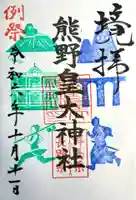 境拝
熊野皇大神社
例祭
令和 年十月十一日